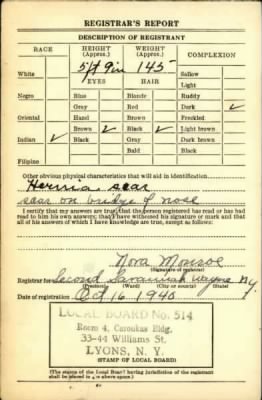 REGISTRAR'S REPORT
DESCRIPTION OF REGISTRANT
RACE HEIGHT (Approx.) WEIGHT (Approx.) COMPLEXION
White 5 ft 9 in 145 Sallow
EYES HAIR Light
Negro Blue Blonde Ruddy
Gray Red Dark ✓
Oriental Hazel Brown Freckled
Brown ✓ Black ✓ Light brown
Indian ✓ Black Gray Dark brown
Bald Black
Filipino
Other obvious physical characteristics that will aid in identification
Hernia scar
scar on bridge of nose
I certify that my answers are true; that the person registered has read or has had
read to him his own answers; that I have witnessed his signature or mark and that
all of his answers of which I have knowledge are true, except as follows:
Nora Monroe
(Signature of registrar)
Registrar for Second Savannah Wayne N.Y.
(Precinct) (Ward) (City or county) (State)
Date of registration Oct 16 1940
LOCAL BOARD No. 514
Room 4, Caroukas Bldg.
33-44 Williams St.
LYONS, N. Y.
(STAMP OF LOCAL BOARD)
(The stamp of the Local Board having jurisdiction of the registrant
shall be placed in the above space.)